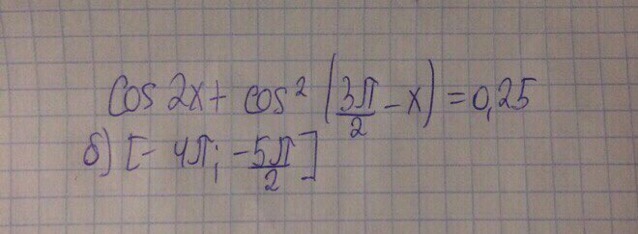 cos 2x + cos² (3π/2 - x) = 0,25
б) [-4π; -5π/2]